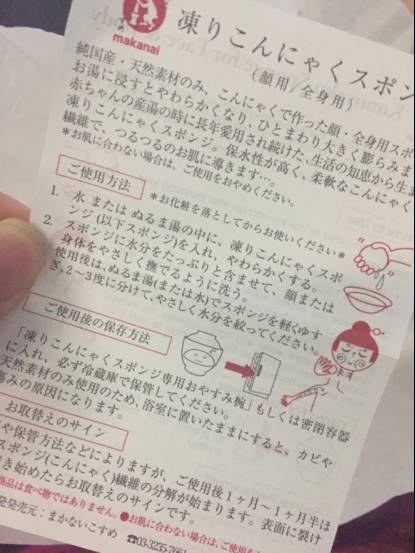 makanai
凍りこんにゃくスポン
(顔用/全身用)
純国産・天然素材のみ、こんにゃくで作った顔・全身用スポ
お湯に浸すとやわらかくなり、ひとまわり大きく膨らみま
赤ちゃんの産湯の時に長年愛用され続けた、生活の知恵から生
凍りこんにゃくスポンジ。保水性が高く、柔軟なこんにゃく
繊維で、つるつるのお肌に導きます…。
*お肌に合わない場合は、ご使用をおやめください。
ご使用方法
*お化粧を落としてからお使いください*
1. 水 または ぬるま湯の中に、凍りこんにゃくスポ
ンジ(以下スポンジ)を入れ、やわらかくする。
2. スポンジに水分をたっぷりと含ませて、顔または
身体をやさしく撫でるように洗う。
使用後は、ぬるま湯(または水)でスポンジを軽くゆす
ぎ、2〜3度に分けて、やさしく水分を絞ってください。
ご使用後の保存方法
「凍りこんにゃくスポンジ専用おやすみ椀」もしくは密閉容器
に入れ、必ず冷蔵庫で保管してください。
天然素材のみ使用のため、浴室に置いたままにすると、カビや
傷みの原因になります。
お取替えのサイン
や保管方法などによりますが、ご使用後1ヶ月〜1ヶ月半ほ
スポンジ(こんにゃく)繊維の分解が始まります。表面に裂け
き始めたらお取替えのサインです。
商品は食べ物ではありません。●お肌に合わない場合は、ご使用を
発売元:まかないこすめ
☎03-3235-7661